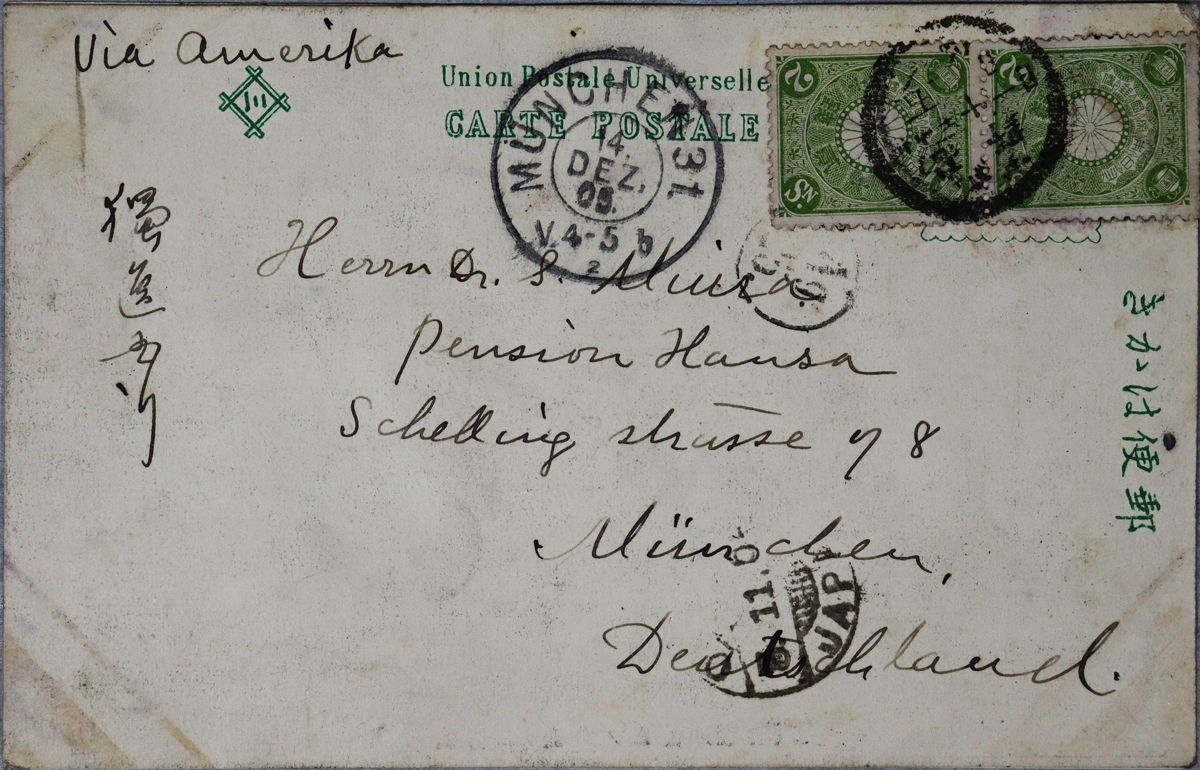 Via Amerika
Union Postale Universelle
CARTE POSTALE
MÜNCHEN 31
14.
DEZ.
V.4-5
2
Herrn Dr. S. Miura
Pension Hansa
Schelling strasse 78
München,
Deutschland.
きかは便郵
2
2
11.
JAP